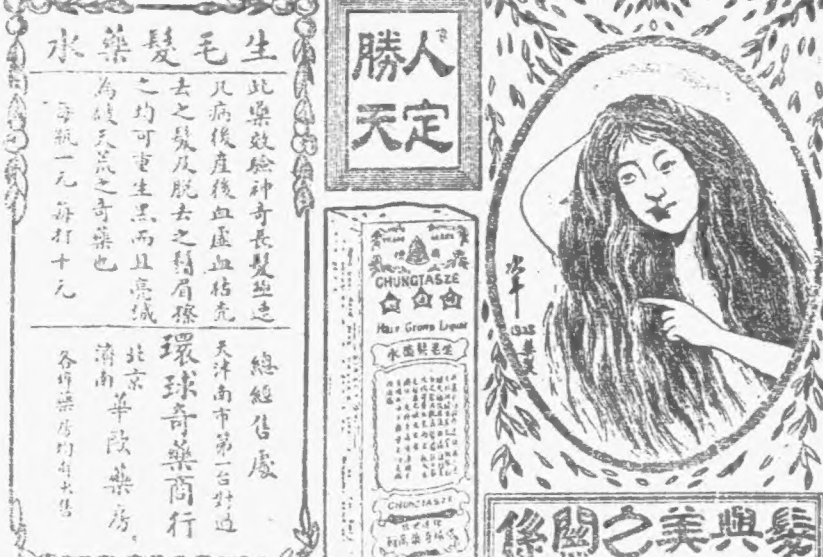 生毛髮藥水
此藥效驗神奇長髮極速
凡病後產後血虛血枯禿
去之髮及脫去之鬍眉搽
之均可重生黑而且亮誠
為破天荒之奇藥也
每瓶一元每打十元
總經售處
天津南市第一台對過
環球奇藥商行
北京
濟南
華歐藥房
各埠藥房均有出售
人定
勝天
TRADE MARK
CHUNGTASZE
Hair Grows Liquor
生毛髮藥水
CHUNGTASZE
1928
髮與美之關係